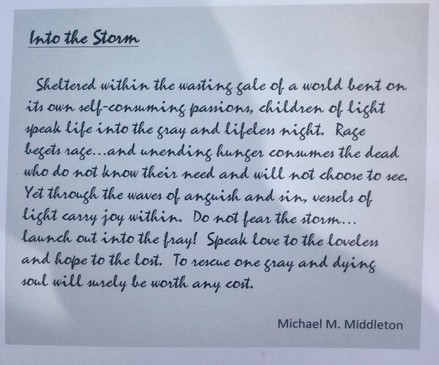 Into the Storm
Sheltered within the wasting gale of a world bent on
its own self-consuming passions, children of light
speak life into the gray and lifeless night. Rage
begets rage...and unending hunger consumes the dead
who do not know their need and will not choose to see.
Yet through the waves of anguish and sin, vessels of
light carry joy within. Do not fear the storm...
launch out into the fray! Speak love to the loveless
and hope to the lost. To rescue one gray and dying
soul will surely be worth any cost.
Michael M. Middleton